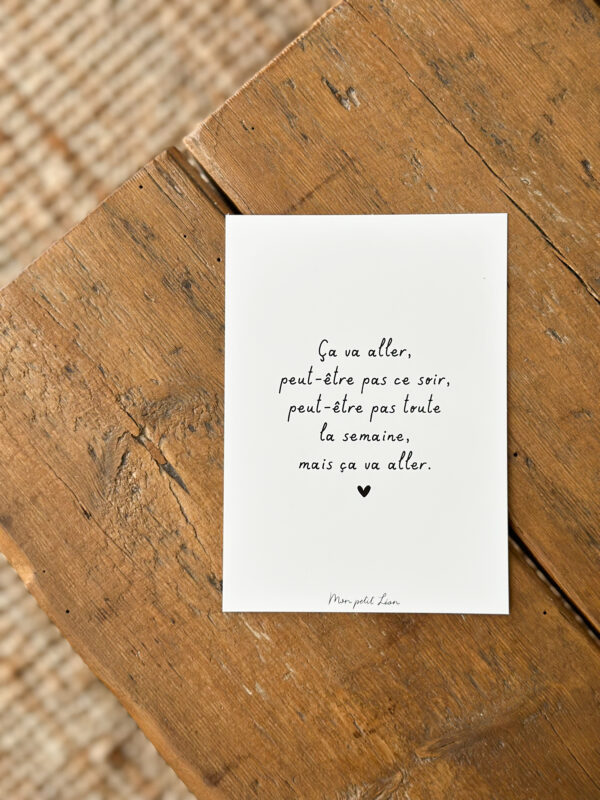 Ça va aller,
peut-être pas ce soir,
peut-être pas toute
la semaine,
mais ça va aller.
Mon petit Lion